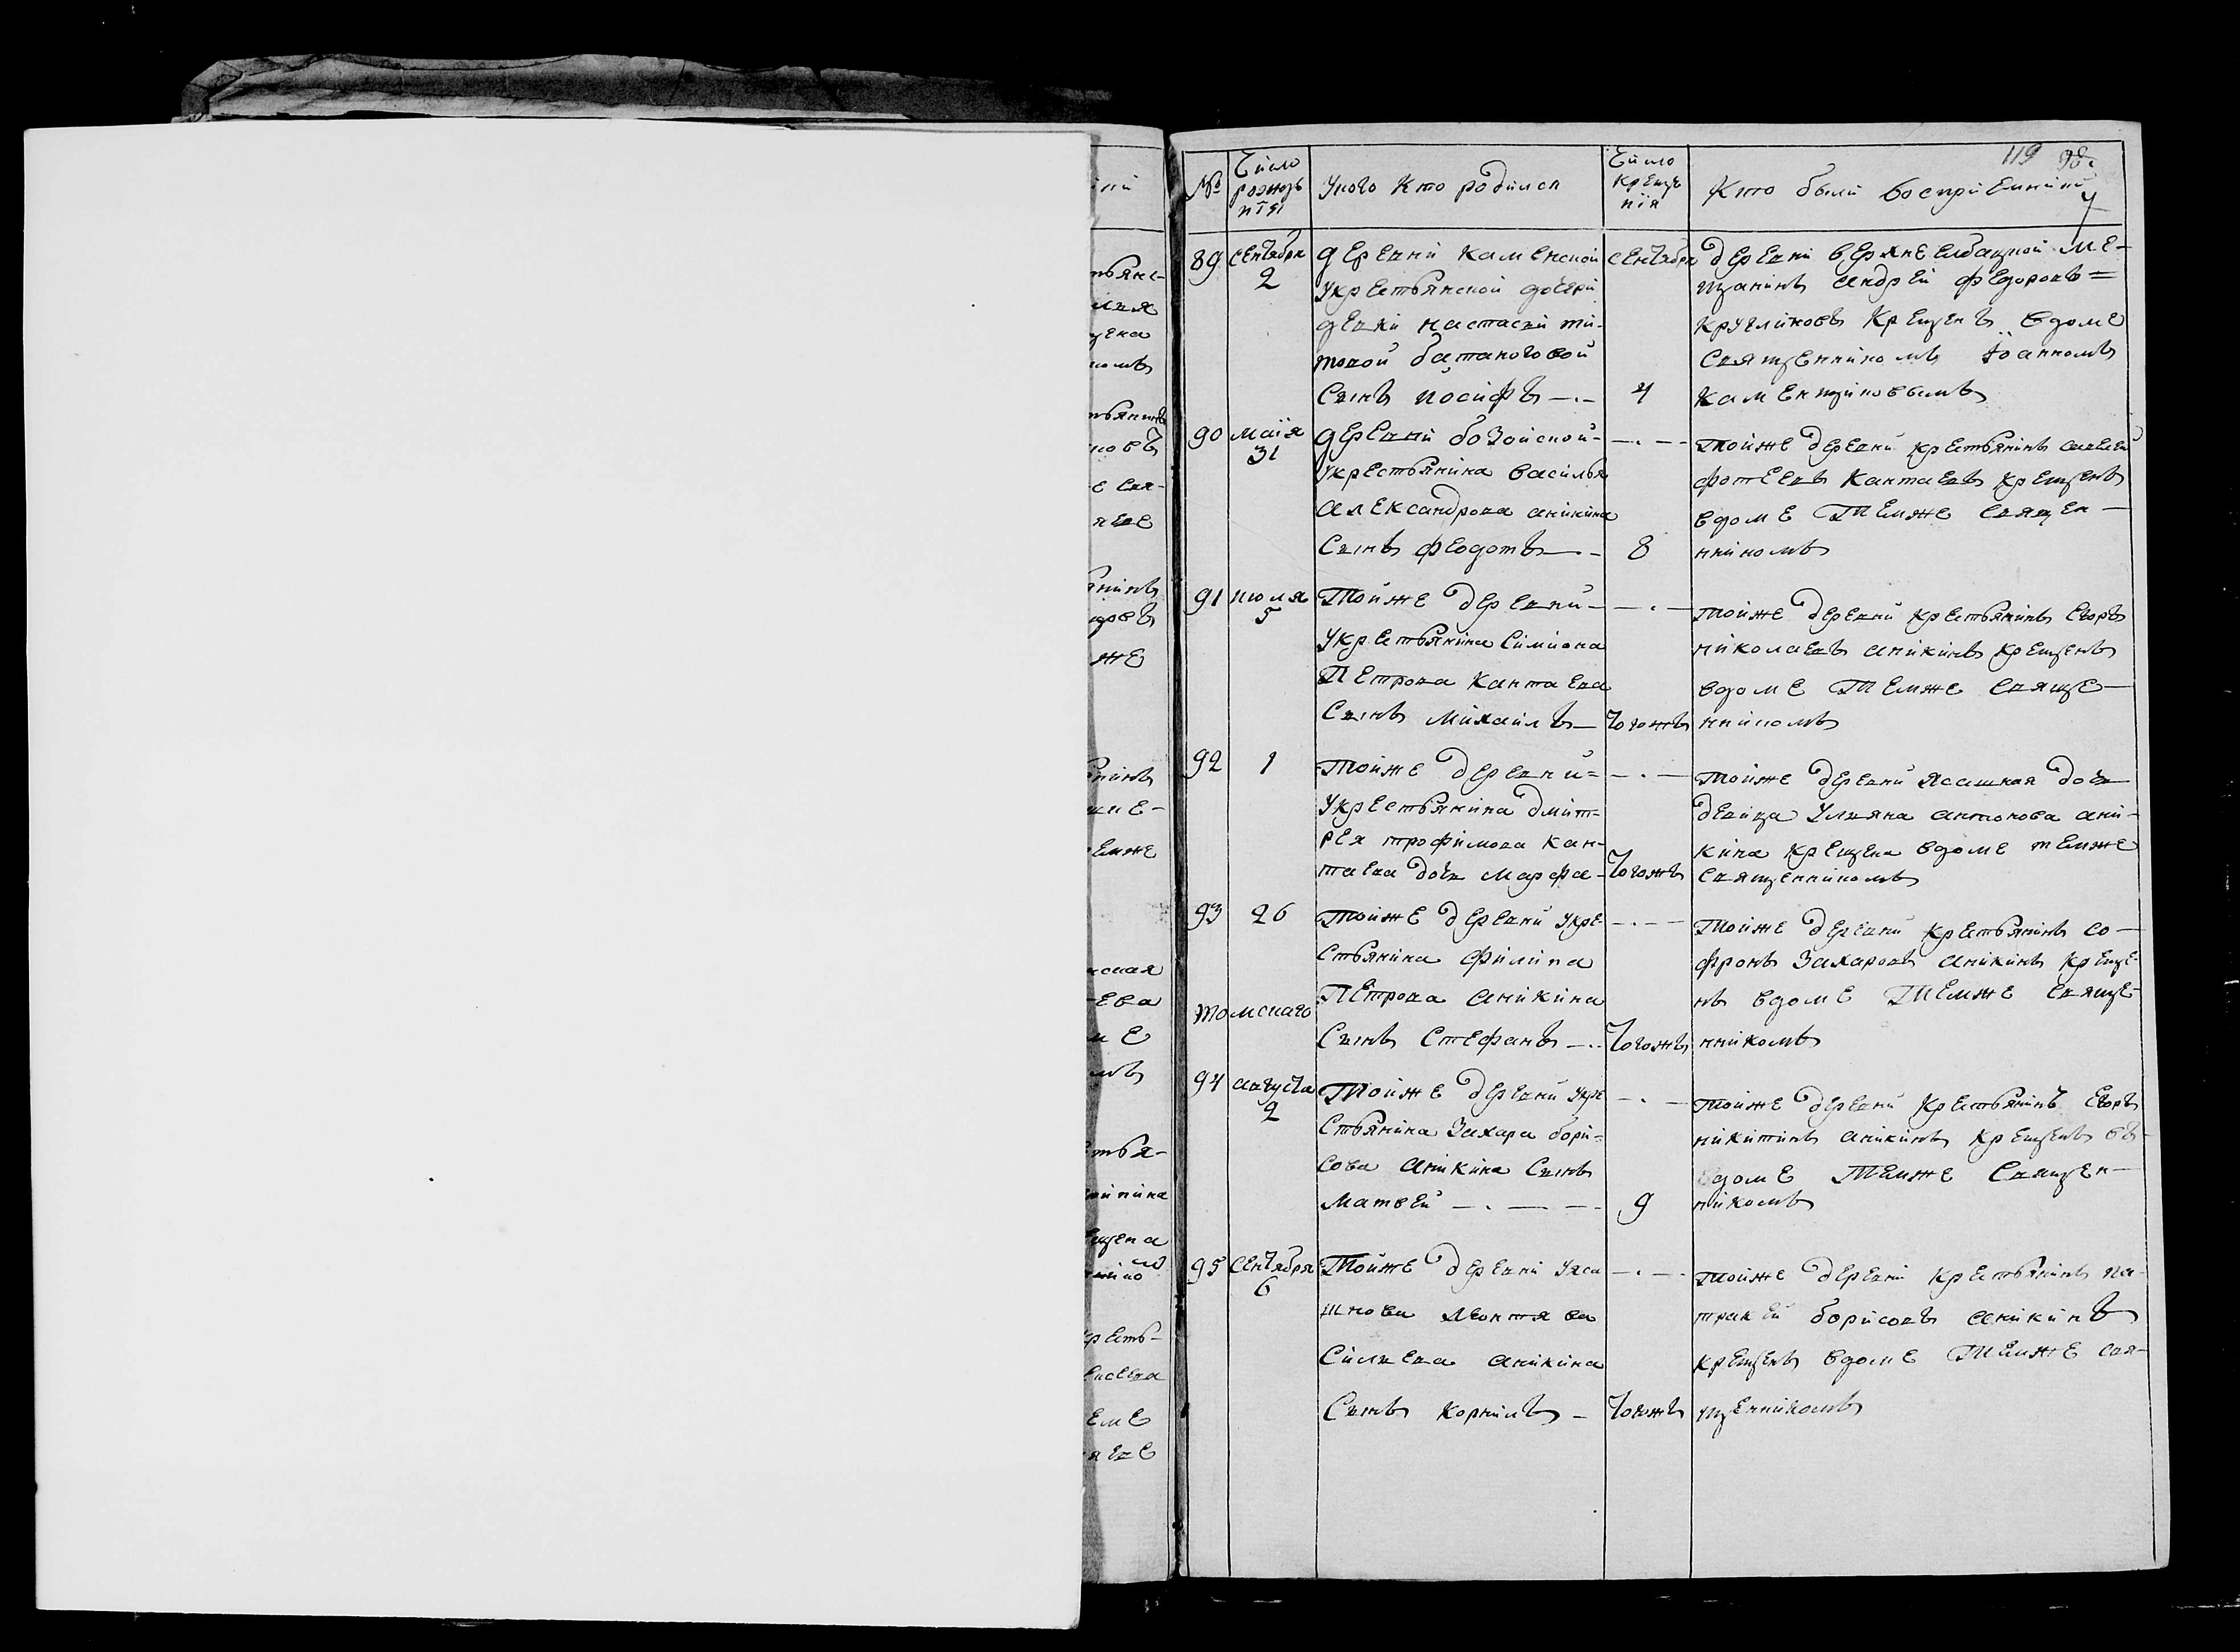 119 98.
№
Число рождѣ нїя
У кого кто родился
Число крещѣ нїя
Кто были воспрїемники
89 Сентября 2
деревни Каменской
укрестьянской дочери
девки настасьи ти-
товой батаноговой
Сынъ иосифъ —.—
Сентября 4
деревни верхнеелбацкой ме-
щанинъ андрей федоровъ =
кругликовъ крещенъ вдоме
Священникомъ Іоанномъ
Каменщиковымъ
90 маїя 31
деревни бозойской -
укрестьянина василья
александрова аникина
Сынъ феодотъ —.—
—.— 8
тойже деревни крестьянинъ савелей
фотеевъ кантаевъ крещенъ
вдоме Темже священ—
никомъ
91 июля 5
Тойже деревни —
укрестьянина Симиона
Петрова Кантаева
Сынъ михаилъ —
—.— Тогожъ
тойже деревни крестьянинъ Егоръ
николаевъ аникинъ крещенъ
вдоме Темже свяще—
нникомъ
92 1
тойже деревни =
укрестьянина дмит=
рея трофимова кан-
таева дочь марфа -
—.— Тогожъ
тойже деревни ясашная дочь
девица Ульяна антонова ани-
кина крещена вдоме темже
священникомъ
93 26
тойже деревни укре-
стьянина филипа
Петрова аникина
Сынъ Стефанъ —..
томскаго
—.— Тогожъ
Тойже деревни крестьянинъ со—
фронъ Захаровъ аникинъ креще-
нъ вдоме Темже свяще-
нникомъ
94 августа 2
Тойже деревни укре
стьянина Захара бори=
сова аникина Сынъ
матвей —.— —-
—.— 9
тойже деревни крестьянинъ Егоръ
никитинъ аникинъ крещенъ въ-
вдоме Темже Священ—
никомъ
95 Сентября 6
Тойже деревни уяса
шнова леонтя ва
Сильева аникина
Сынъ корнилъ —
—.— Тогожъ
тойже деревни крестьянинъ па-
трикей борисовъ аникинъ
крещенъ вдоме Темже свя-
щенникомъ